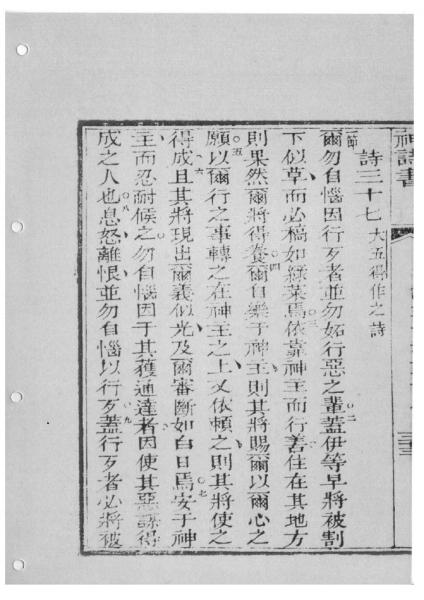 神詩書
詩三十七 大五得作之詩
一節 爾勿自惱因行歹者並勿妬行惡之輩○二蓋伊等早將被割
下似草而必槁如綠菜焉○三依靠神主而行善住在其地方
則果然爾將得養○四爾自樂于神主則其將賜爾以爾心之
願○五以爾行之事轉之在神主之上又依賴之則其將使之
得成○六且其將現出爾義似光及爾審斷如白日焉○七安于神
主而忍耐候之勿自惱因于其獲通達者因使其惡謀得
成之人也○八息怒離恨並勿自惱以行歹○九蓋行歹者必將被